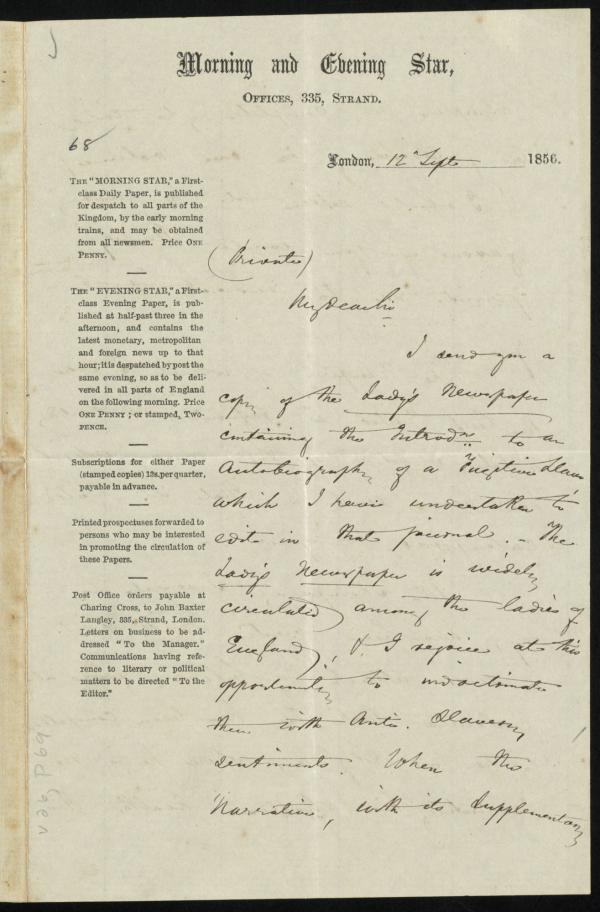 Morning and Evening Star,
OFFICES, 335, STRAND.
68
London, 12th Septr 1856.
THE "MORNING STAR," a First-
class Daily Paper, is published
for despatch to all parts of the
Kingdom, by the early morning
trains, and may be obtained
from all newsmen. Price ONE
PENNY.
THE "EVENING STAR," a First-
class Evening Paper, is pub-
lished at half-past three in the
afternoon, and contains the
latest monetary, metropolitan
and foreign news up to that
hour; it is despatched by post the
same evening, so as to be deli-
vered in all parts of England
on the following morning. Price
ONE PENNY; or stamped, TWO-
PENCE.
Subscriptions for either Paper
(stamped copies) 13s. per quarter,
payable in advance.
Printed prospectuses forwarded to
persons who may be interested
in promoting the circulation of
these Papers.
Post Office orders payable at
Charing Cross, to John Baxter
Langley, 335, Strand, London.
Letters on business to be ad-
dressed "To the Manager."
Communications having refe-
rence to literary or political
matters to be directed "To the
Editor."
(Private)
My dear Sir
I send you a
copy of the Lady's Newspaper
containing the Introdn. to an
Autobiography of a Fugitive Slave
which I have undertaken to
edit in that journal. - The
Lady's Newspaper is widely
circulated among the ladies of
England, & I rejoice at this
opportunity to indoctrinate
them with Anti-Slavery
sentiments. When the
Narrative, with its Supplementary
v.26 p.69